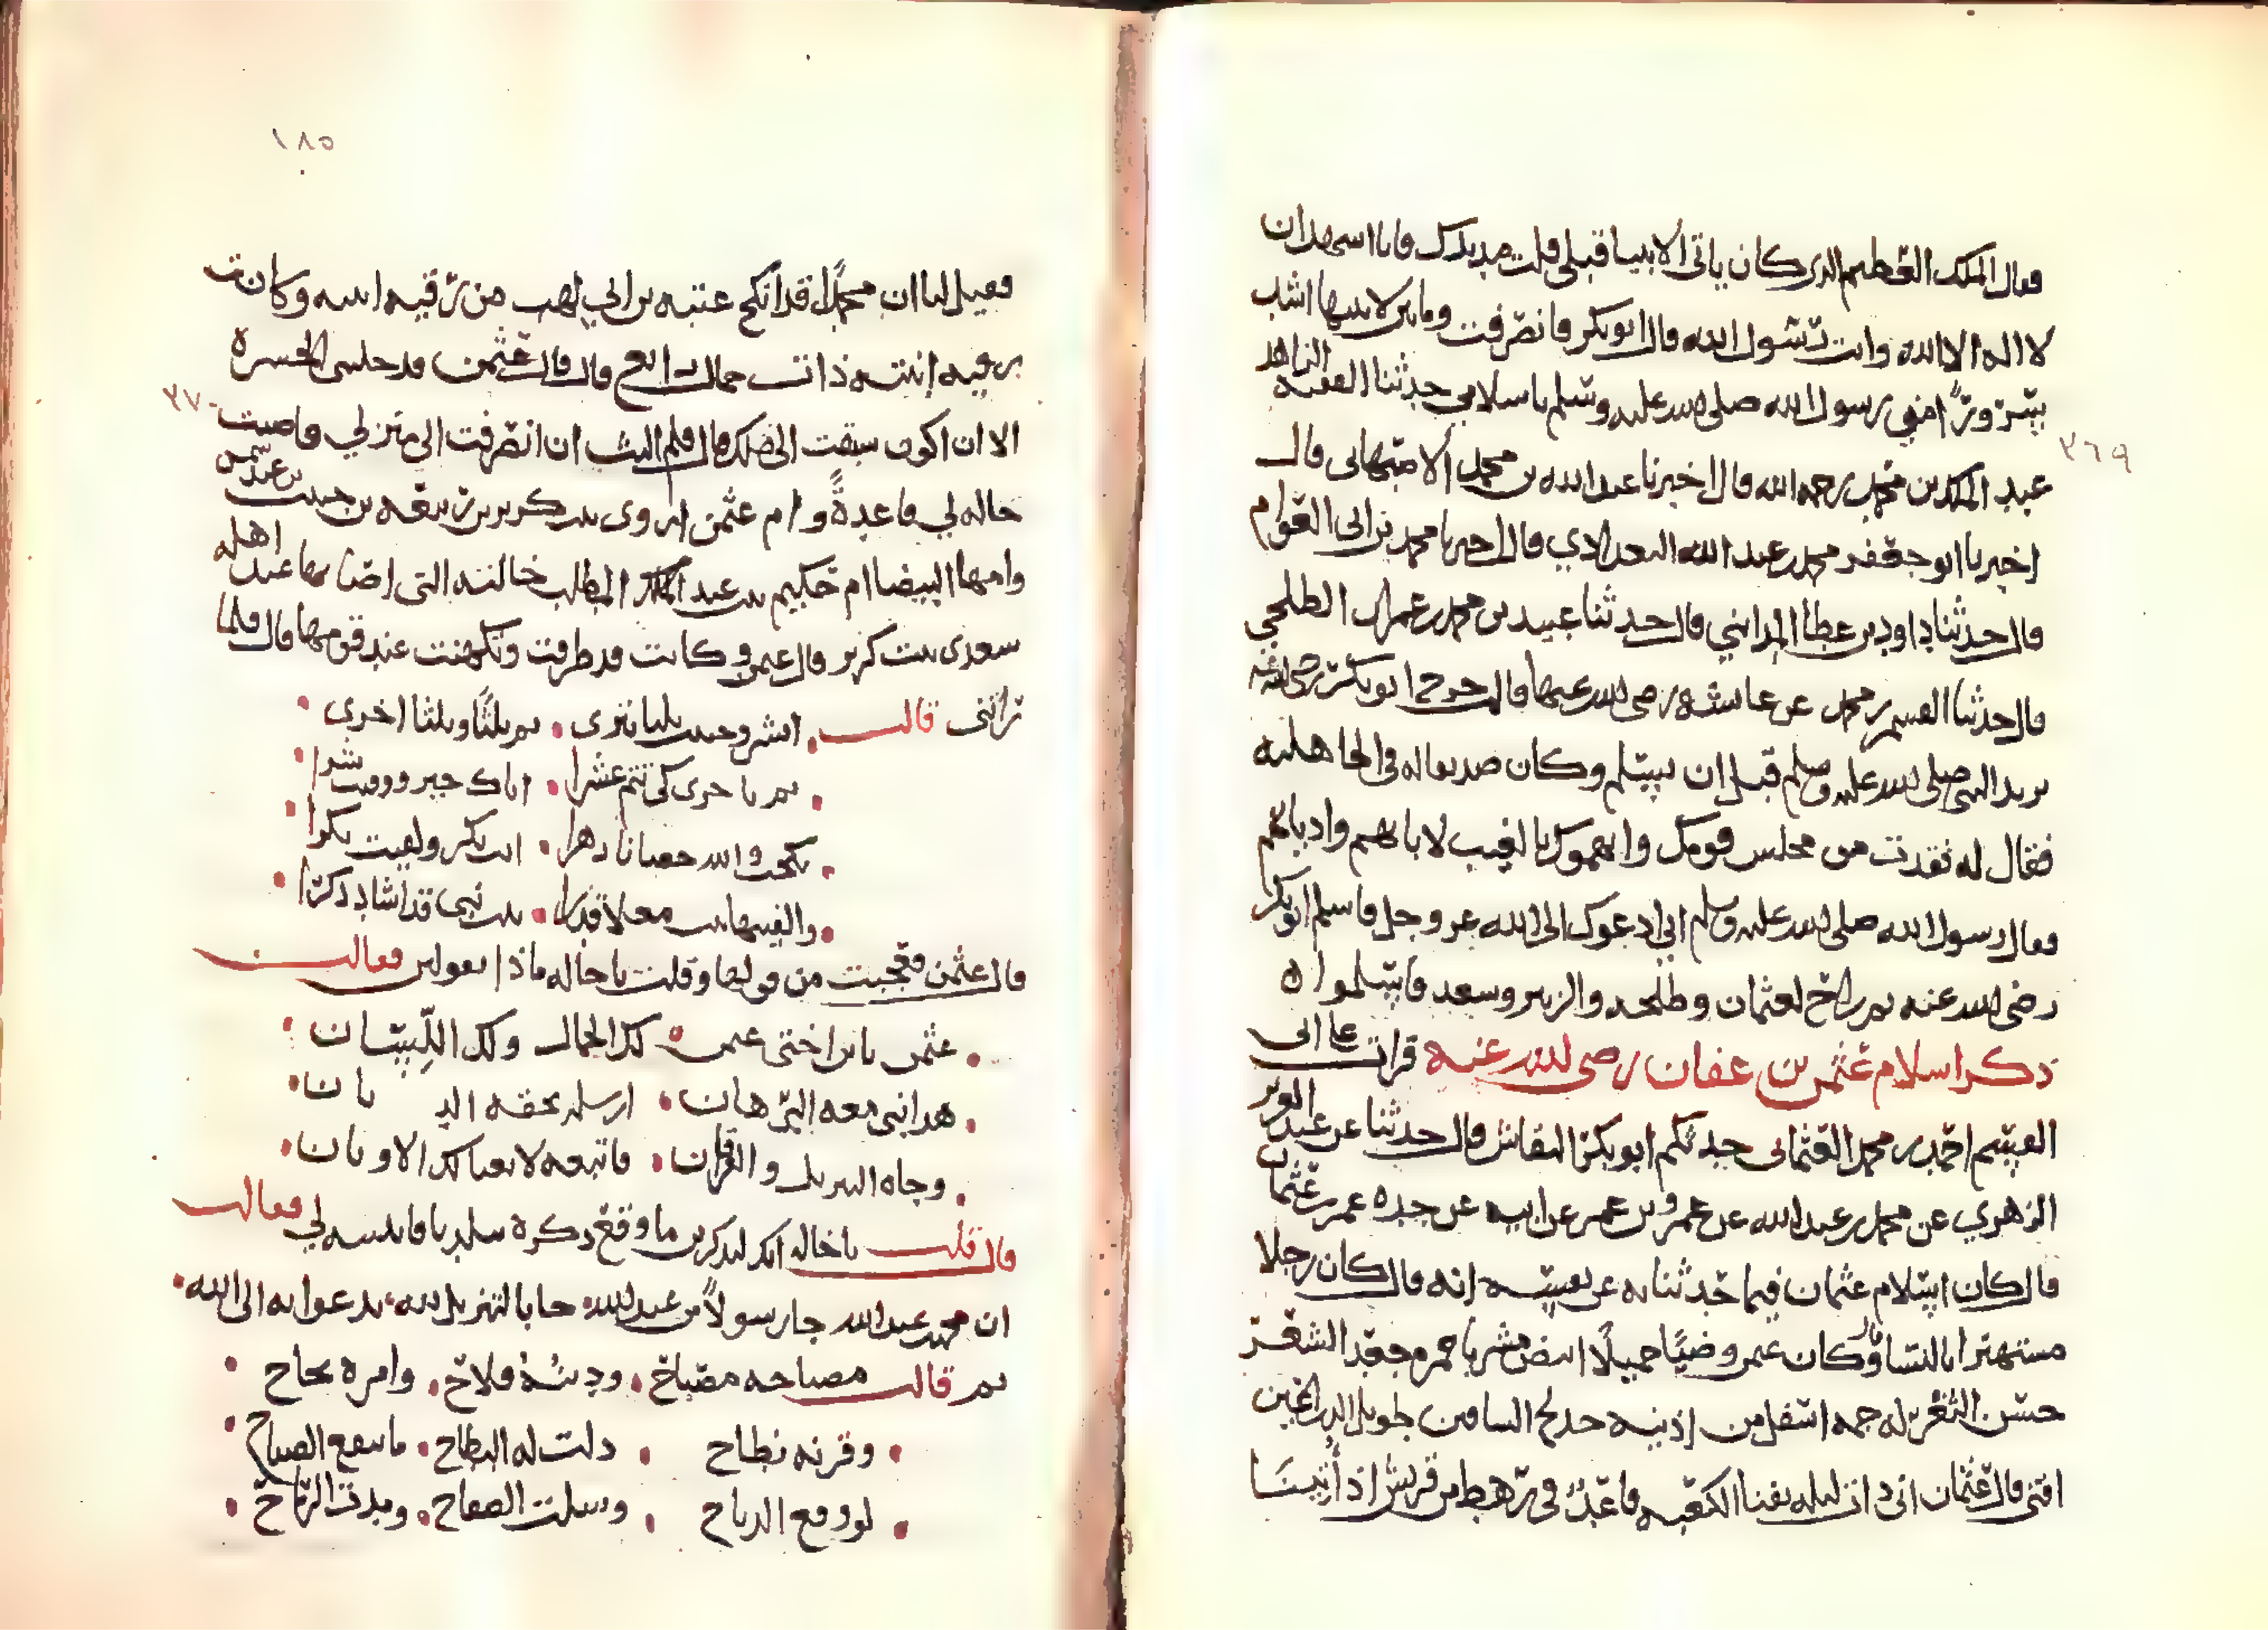 فقال الملك العظيم الذي كان ياتي الانبيا قبلي قلت مد يدك فانا اشهد ان
لا اله الا الله وانك رسول الله قال ابو بكر فانصرفت وما بين لابتيها اشد
سرورًا من رسول الله صلى الله عليه وسلم باسلامي حدثنا الفقيه الزاهد
عبد الملك بن محمد رحمه الله قال اخبرنا عبد الله بن محمد الاصبهاني قال
٣٦٩
اخبرنا ابو جعفر محمد بن عبد الله البغدادي قال اخبرنا محمد بن ابي العوام
قال حدثنا داود بن عطا المدايني قال حدثنا عبيد بن محمد بن عمران الطلحي
قال حدثنا القسم بن محمد عن عايشه رضى الله عنها قالت خرج ابو بكر رضى الله عنه
يريد النبي صلى الله عليه وسلم قبل ان يسلم وكان صديقا له في الجاهليه
فقال له فقدت من مجلس قومك واتهموك بالغيب لابايهم واديانهم
فقال رسول الله صلى الله عليه وسلم اني ادعوك الى الله عز وجل فاسلم ابو بكر
رضى الله عنه ثم راح لعثمان وطلحه والزبير وسعد فاسلموا ه
ذكر اسلام عثمن بن عفان رضى الله عنه قرات على ابي
القسم احمد بن محمد العثماني حدثكم ابو بكر النقاش قال حدثنا عن عبد العزيز
الزهري عن محمد بن عبد الله عن عمرو بن عمر عن ابيه عن جده عمر بن عثمان
قال كان اسلام عثمان فيما حدثنا به عن نفسه انه قال كان رجلا
مستهترا بالنسا قال وكان عمرو وضيًا جميلًا ابيض مشربا حمره جعد الشعر
حسن الثغر له جمه اسفل من اذنيه خدلج الساقين طويل الذراعين
اقنى قال عثمان اني ذات ليله بفنا الكعبه قاعدٌ في رهط من قريش اذ أُتينا
١٨٥
فقيل لنا ان محمدًا قد انكح عتبه بن ابي لهب من رقيه ابنته وكانت
رقيه ابنته ذات جمال رايع قال قال عثمن فدخلني الحسره
الا ان اكون سبقت الى ذلك قال فلم البث ان انصرفت الى منزلي فاصبت
٣٧٠
خاله لي قاعدةً وام عثمن اروى بنت كريز بن ربيعه بن حبيب بن عبد شمس
وامها البيضا ام حكيم بنت عبد المطلب خالته التي اصابها عند اهله
سعدى بنت كريز قال عمرو وكانت قد طرقت وتكهنت عند قومها قال فلما
راتني قالت ابشر وحييت ثلثا تترى • ثم ثلثًا وثلثا اخرى •
• ثم باخرى كي تتم عشرا • اتاك خير ووقيت شرا •
• نكحت والله حصانا زهرا • انت بكر ولقيت بكرا •
• والفيتها بنت معلا قدرا • بنت نبي قد اشاد ذكرا •
قال عثمن فعجبت من قولها وقلت يا خاله ماذا تقولين فقالت
• عثمن يا بن اختي عثمن • لك الجمال ولك اللسان •
• هذا نبي معه البرهان • ارسله بحقه الد يان •
• وجاه التنزيل والفرقان • فاتبعه لا تغيا لك الاوثان •
قال قلت يا خاله انك لتذكرين ما وقع ذكره ببلدنا فابينيه لي فقالت
ان محمد بن عبد الله جا رسولاً من عند الله • جا بالتنزيل لله • يدعوا به الى الله •
ثم قالت مصباحه مصباح • ودينه فلاح • وامره نجاح •
• وقرنه نطاح • ذلت له البطاح • ما ينفع الصياح •
• لو وقع الذباح • وسلت الصفاح • ومدت الرماح •